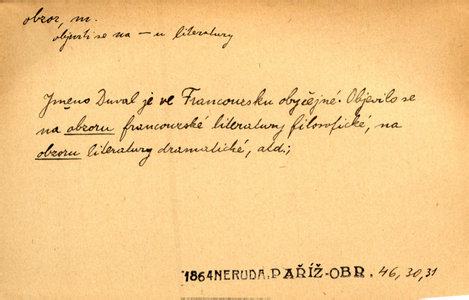 obzor, m.
objeviti se na – u literatury
Jméno Duval je ve Francouzsku obyčejné. Objevilo se
na obzoru francouzské literatury filosofické, na
obzoru literatury dramatické, atd.;
1864 NERUDA, PAŘÍŽ-OBR. 46, 30, 31